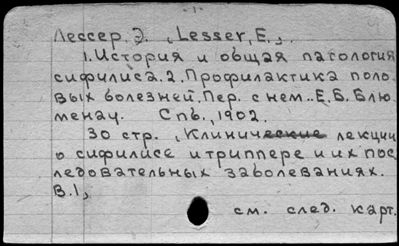 -1-
Лессер, Э. , Lesser, E.,
1. История и общая патология
сифилиса. 2. Профилактика поло-
вых болезней. Пер. с нем.. Е.Б. Блю-
менау. Спб., 1902.
30 стр. , Клинические лекции
о сифилисе и триппере и их пос-
ледовательных заболеваниях.
В.1,
см. след. карт.